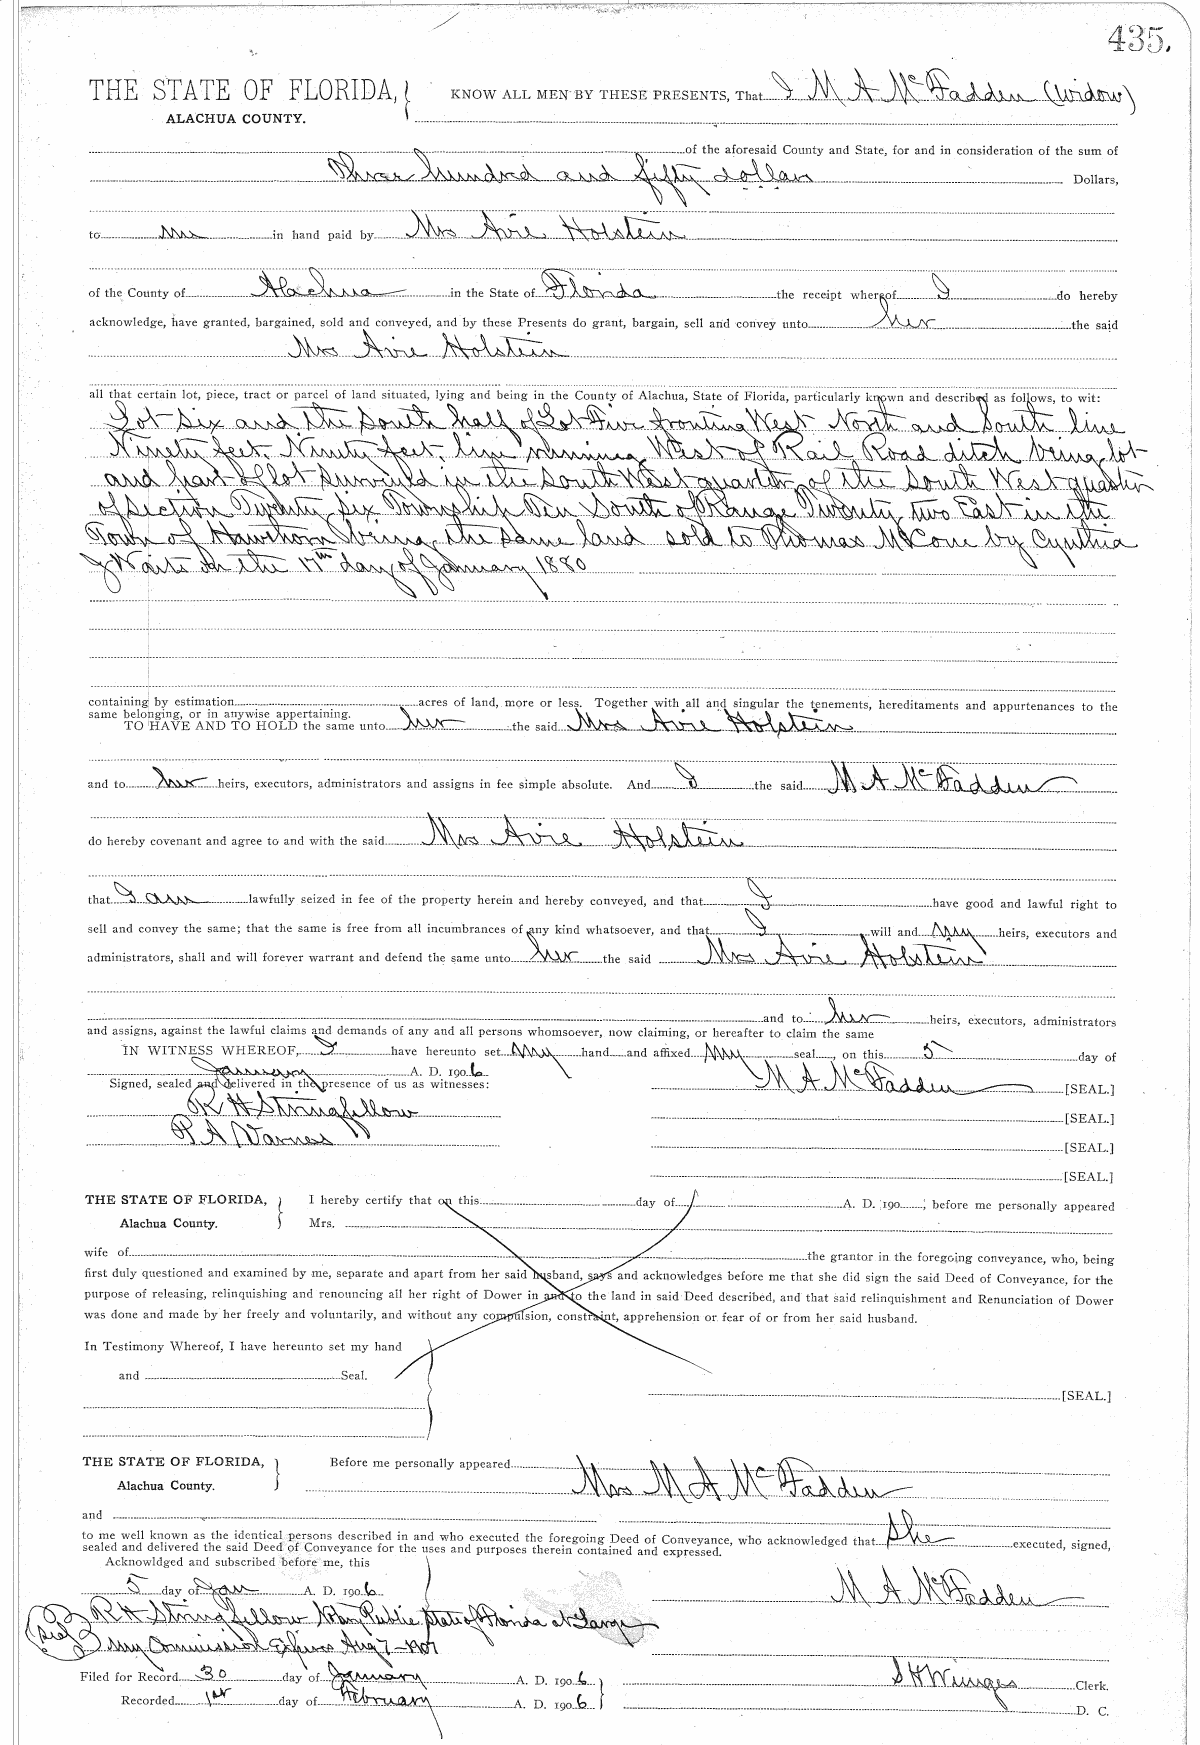 435.
THE STATE OF FLORIDA, KNOW ALL MEN BY THESE PRESENTS, That I M A McFadden (widow)
ALACHUA COUNTY.
of the aforesaid County and State, for and in consideration of the sum of
Three hundred and fifty dollars Dollars,
to me in hand paid by Mrs Avie Holstein
of the County of Alachua in the State of Florida the receipt whereof I do hereby
acknowledge, have granted, bargained, sold and conveyed, and by these Presents do grant, bargain, sell and convey unto her the said
Mrs Avie Holstein
all that certain lot, piece, tract or parcel of land situated, lying and being in the County of Alachua, State of Florida, particularly known and described as follows, to wit:
Lot Six and the South half of Lot Five fronting West North and South line
Ninety feet, Ninety feet, line running West of Rail Road ditch being lot
and part of lot surveyed in the South West quarter of the South West quarter
of Section Twenty six Township Ten South of Range Twenty two East in the
Town of Hawthorn being the same land sold to Thomas McCone by Cynthia
J Waits on the 17th day of January 1880
containing by estimation acres of land, more or less. Together with all and singular the tenements, hereditaments and appurtenances to the
same belonging, or in anywise appertaining.
TO HAVE AND TO HOLD the same unto her the said Mrs Avie Holstein
and to her heirs, executors, administrators and assigns in fee simple absolute. And I the said M A McFadden
do hereby covenant and agree to and with the said Mrs Avie Holstein
that I am lawfully seized in fee of the property herein and hereby conveyed, and that I have good and lawful right to
sell and convey the same; that the same is free from all incumbrances of any kind whatsoever, and that I will and my heirs, executors and
administrators, shall and will forever warrant and defend the same unto her the said Mrs Avie Holstein
and to her heirs, executors, administrators
and assigns, against the lawful claims and demands of any and all persons whomsoever, now claiming, or hereafter to claim the same
IN WITNESS WHEREOF, I have hereunto set my hand and affixed my seal, on this 5 day of
January A. D. 1906
Signed, sealed and delivered in the presence of us as witnesses: M A McFadden [SEAL.]
R H Stringfellow [SEAL.]
P A Varnes [SEAL.]
[SEAL.]
THE STATE OF FLORIDA, I hereby certify that on this day of A. D. 190 , before me personally appeared
Alachua County. Mrs.
wife of the grantor in the foregoing conveyance, who, being
first duly questioned and examined by me, separate and apart from her said husband, says and acknowledges before me that she did sign the said Deed of Conveyance, for the
purpose of releasing, relinquishing and renouncing all her right of Dower in and to the land in said Deed described, and that said relinquishment and Renunciation of Dower
was done and made by her freely and voluntarily, and without any compulsion, constraint, apprehension or fear of or from her said husband.
In Testimony Whereof, I have hereunto set my hand
and Seal.
[SEAL.]
THE STATE OF FLORIDA, Before me personally appeared
Alachua County. Mrs M A McFadden
and
to me well known as the identical persons described in and who executed the foregoing Deed of Conveyance, who acknowledged that She executed, signed,
sealed and delivered the said Deed of Conveyance for the uses and purposes therein contained and expressed.
Acknowldged and subscribed before me, this
5 day of Jan A. D. 1906 M A McFadden
R H Stringfellow Notary Public State of Florida at Large
(Seal) My Commission Expires Aug 7-1907
Filed for Record 30 day of January A. D. 1906 S H Wienges Clerk.
Recorded 1st day of February A. D. 1906 D. C.